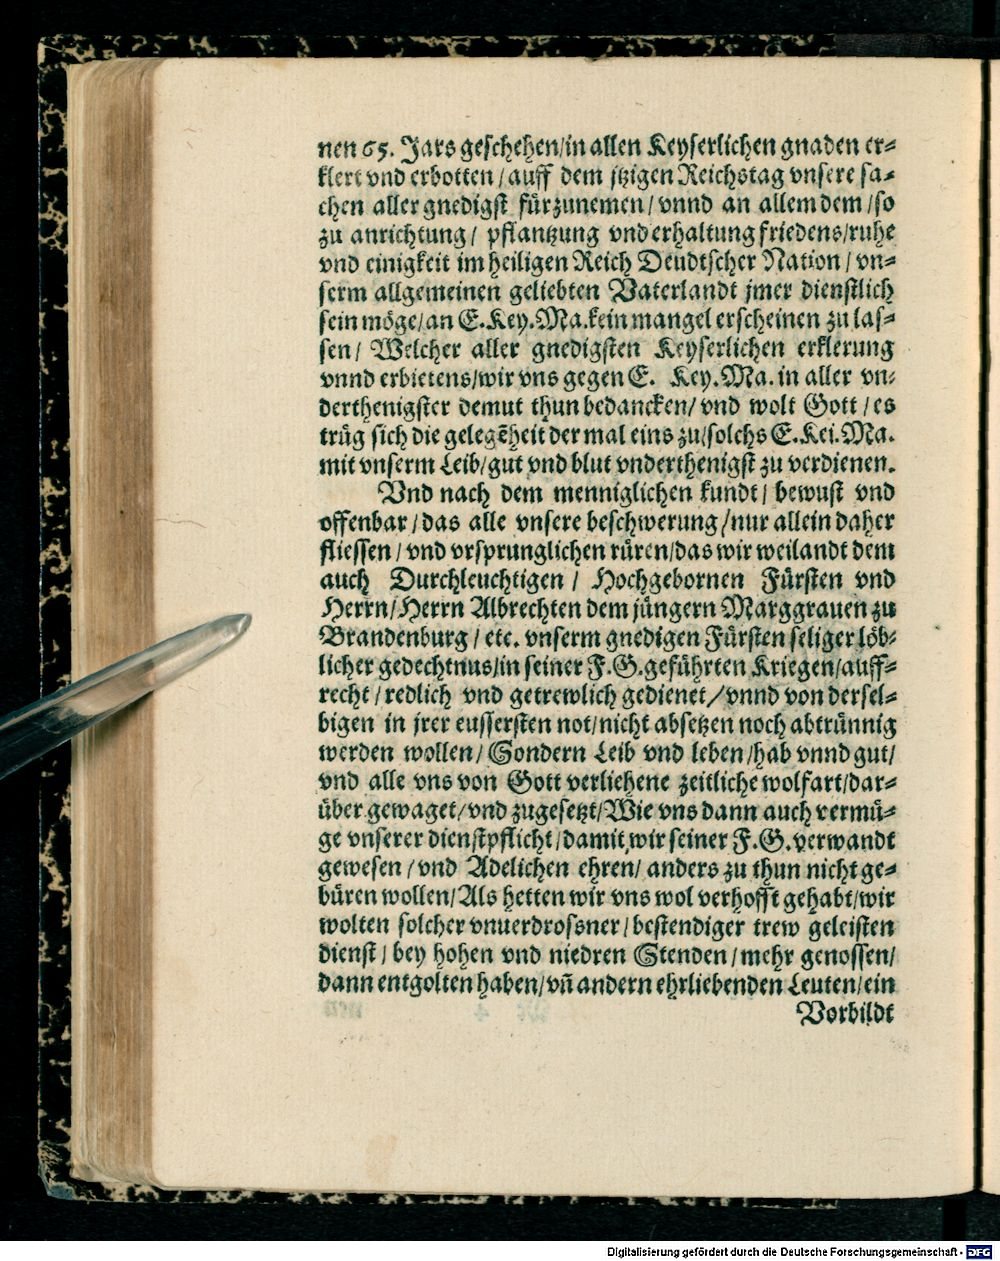 nen 65. Jars geschehen/in allen Keyserlichen gnaden er-
klert vnd erbotten/auff dem jtzigen Reichstag vnsere sa-
chen aller gnedigst fürzunemen/vnnd an allem dem/so
zu anrichtung/pflantzung vnd erhaltung friedens/ruhe
vnd einigkeit im heiligen Reich Deudtscher Nation/vn-
serm allgemeinen geliebten Vaterlandt jmer dienstlich
sein möge/an E.Key.Ma.kein mangel erscheinen zu las-
sen/Welcher aller gnedigsten Keyserlichen erklerung
vnnd erbietens/wir vns gegen E. Key.Ma. in aller vn-
derthenigster demut thun bedancken/vnd wolt Gott/es
trüg sich die gelegẽheit der mal eins zu/solchs E.Kei.Ma.
mit vnserm Leib/gut vnd blut vnderthenigst zu verdienen.
Vnd nach dem menniglichen kundt/bewust vnd
offenbar/das alle vnsere beschwerung/nur allein daher
fliessen/vnd vrsprunglichen rüren/das wir weilandt dem
auch Durchleuchtigen/Hochgebornen Fürsten vnd
Herrn/Herrn Albrechten dem jüngern Marggrauen zu
Brandenburg/etc. vnserm gnedigen Fürsten seliger löb-
licher gedechtnus/in seiner F.G.geführten Kriegen/auff-
recht/redlich vnd getrewlich gedienet/vnnd von dersel-
bigen in jrer eussersten not/nicht absetzen noch abtrünnig
werden wollen/Sondern Leib vnd leben/hab vnnd gut/
vnd alle vns von Gott verliehene zeitliche wolfart/dar-
über gewaget/vnd zugesetzt/Wie vns dann auch vermü-
ge vnserer dienstpflicht/damit wir seiner F.G.verwandt
gewesen/vnd Adelichen ehren/anders zu thun nicht ge-
büren wollen/Als hetten wir vns wol verhofft gehabt/wir
wolten solcher vnuerdrossner/bestendiger trew geleisten
dienst/bey hohen vnd niedren Stenden/mehr genossen/
dann entgolten haben/vñ andern ehrliebenden Leuten/ein
Vorbildt
Digitalisierung gefördert durch die Deutsche Forschungsgemeinschaft - DFG